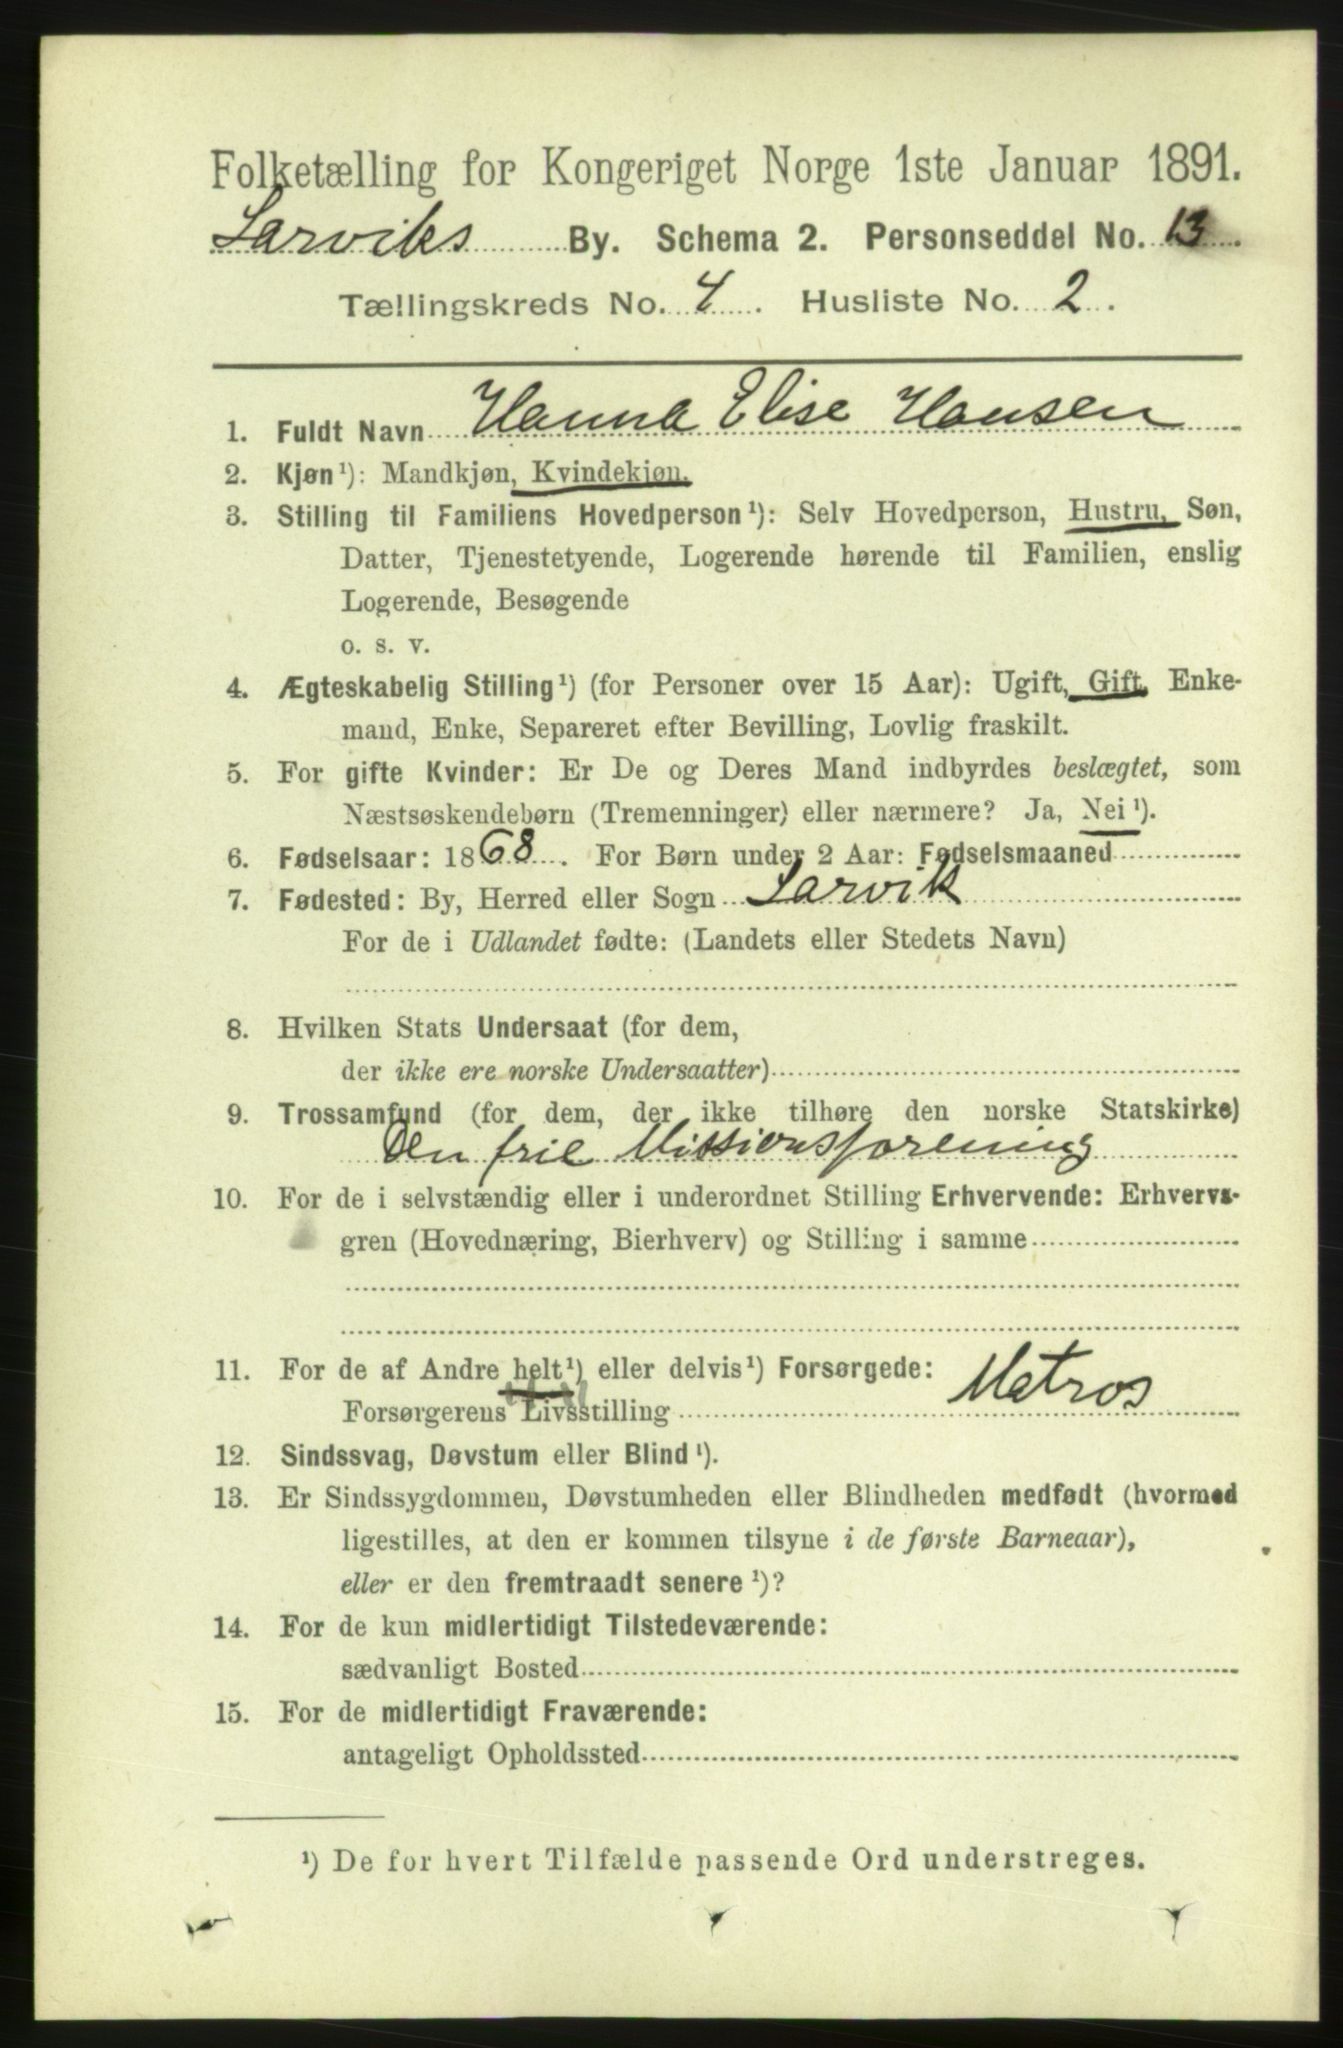 Folketælling for Kongeriget Norge 1ste Januar 1891.
Larviks By. Schema 2. Personseddel No. 13.
Tællingskreds No. 4. Husliste No. 2.
1. Fuldt Navn Hanna Elise Hansen
2. Kjøn¹): Mandkjøn, Kvindekjøn.
3. Stilling til Familiens Hovedperson¹): Selv Hovedperson, Hustru, Søn,
Datter, Tjenestetyende, Logerende hørende til Familien, enslig
Logerende, Besøgende
o. s. v.
4. Ægteskabelig Stilling¹) (for Personer over 15 Aar): Ugift, Gift, Enke-
mand, Enke, Separeret efter Bevilling, Lovlig fraskilt.
5. For gifte Kvinder: Er De og Deres Mand indbyrdes beslægtet, som
Næstsøskendebørn (Tremenninger) eller nærmere? Ja, Nei¹).
6. Fødselsaar: 1868. For Børn under 2 Aar: Fødselsmaaned
7. Fødested: By, Herred eller Sogn Larvik
For de i Udlandet fødte: (Landets eller Stedets Navn)
8. Hvilken Stats Undersaat (for dem,
der ikke ere norske Undersaatter)
9. Trossamfund (for dem, der ikke tilhøre den norske Statskirke)
Den frie Missionsforening
10. For de i selvstændig eller i underordnet Stilling Erhvervende: Erhvervs-
gren (Hovednæring, Bierhverv) og Stilling i samme
11. For de af Andre helt¹) eller delvis¹) Forsørgede:
Forsørgerens Livsstilling Matros
12. Sindssvag, Døvstum eller Blind¹).
13. Er Sindssygdommen, Døvstumheden eller Blindheden medfødt (hvormed
ligestilles, at den er kommen tilsyne i de første Barneaar),
eller er den fremtraadt senere¹)?
14. For de kun midlertidigt Tilstedeværende:
sædvanligt Bosted
15. For de midlertidigt Fraværende:
antageligt Opholdssted
¹) De for hvert Tilfælde passende Ord understreges.